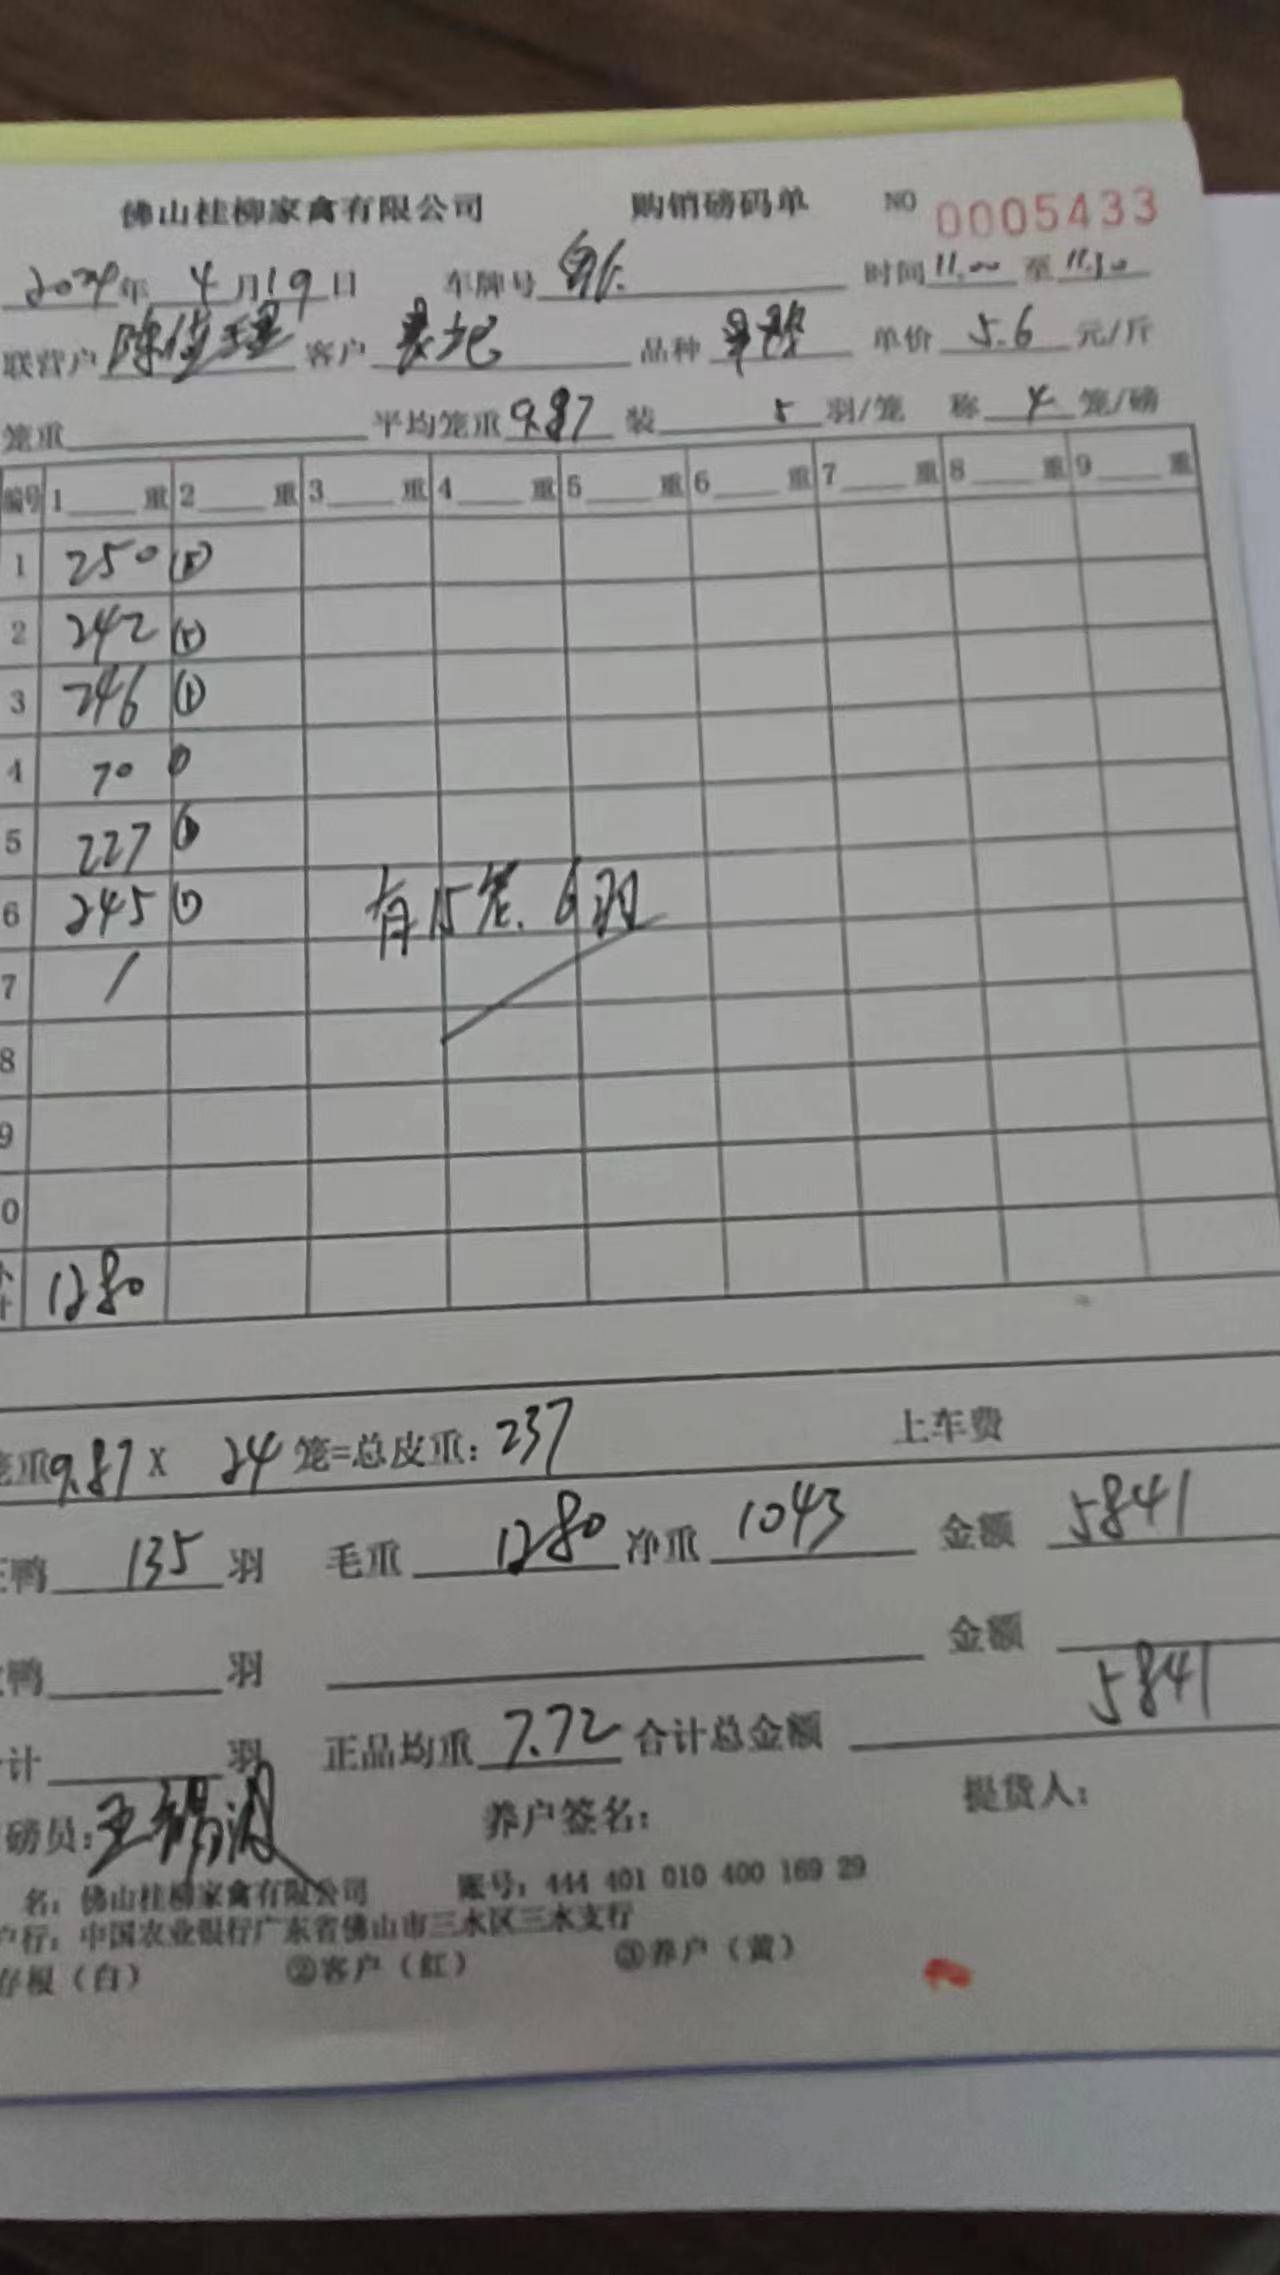 佛山桂柳家禽有限公司 购销磅码单 NO 0005433
2024年 4月19日 车牌号 时间 11.00 至 11.30
联营户 陈 客户 品种 单价 5.6 元/斤
笼重 平均笼重 9.87 装 5 羽/笼 称 4 笼/磅
编号 1 重 2 重 3 重 4 重 5 重 6 重 7 重 8 重 9 重
1 250
2 242
3 246
4 70
5 227
6 245 有15笼. 6羽
7 /
8
9
0
计 1280
重 9.87 X 24 笼=总皮重: 237 上车费
鸭 135 羽 毛重 1280 净重 1043 金额 5841
鸭 羽 金额
计 羽 正品均重 7.72 合计总金额 5841
磅员: 王锡波 养户签名: 提货人:
名: 佛山桂柳家禽有限公司 账号: 444 401 010 400 169 29
户行: 中国农业银行广东省佛山市三水区三水支行
存根(白) ②客户(红) ③养户(黄)